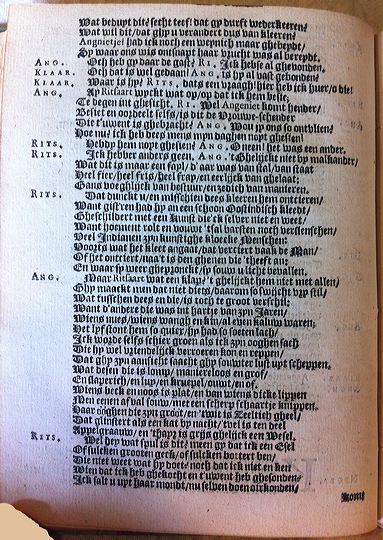 Wat beduyt dit? seeht teef! dat gy durft wederkeeren?
Wat wil dit/ dat ghy u verandert dus van kleeren?
Angnietjel had ick noch een weynich maar ghebeydt/
Sy waar ons wis ontsnapt haar vlucht was al bereydt.
ANG. Och heb gy daar de gast? RI. Ick hebse al ghevonden.
KLAAR. Och dat is wel gedaan! ANG. is hy al vast gebonden?
KLAAR. Waar is hy? RITS. dats een vraagh! hier heb ick huer/o die!
ANG. Ay Ritsaart wyckt wat op/ op dat ick hem besie,
Te degen int ghesicht, RI. Wel Angenier komt hender/
Besiet en oordeelt selfs/ is dit de Vrouwe-schender
Die t'uwent is ghebracht? ANG. Wou hy ons so ontvlien?
Hoe nu! ick heb hem mens myn daghen noyt ghesien!
RITS. Heb dy hem noyt ghesien? ANG. O neen! het was een ander.
RITS. Ick hebber anders geen, ANG. 't Ghelijckt niet by malkander/
Wat dit is maar een sayl/ d'aar was van stal/ van staat
Heel fier/ heel fris/ heel frap/ en eerlijck van ghelaat;
Gans voeghlijck van bestuur/ en zedich van manieren.
RITS. Dat dunckt u/ en misschien dees kleeren hem ontcieren/
Want gist'ren had hy an een schoon Oostindisch kleedt/
Gheschildert met een kunst die 'k selver niet en weet/
Want homent rolt en vouwt 't sal barsten noch verslenschen/
Veel Indianen zyn kunstighe kloecke Menschen:
Voorts wat het kleet angaat/ dat verciert vaack de Man/
Of het ontciert/ naa't is den ghenen die 't heeft an:
En waar hy weer ghepronckt/ hy souw u licht bevallen.
ANG. Maar Ritsaart wat en klap? 't ghelijckt hem niet met allen/
Ghy maackt my dat niet diets/ daarom so swijcht vry stil/
Wat tusschen dees en die/ is toch te groot verschil:
Want d'andere die was int hartje van zyn Jaren/
Wiens mees/ wiens wangh en kin/ al even kaluw waren:
Het lyf stont hem so quier/ hy had so soeten lach/
Ick worde selfs schier groen als ick zyn ooghen sach
Die hy wel vriendelijck verroeren kon en reppen/
Dat ghy zyn aansicht saacht ghy souwter lust upt scheppen.
Wat desen die is lomp/ manierloos en grof/
En slaperich/ en luy/ en kruepel/ ouwt/ en of.
Wiens beck en noos is plat/ en van wiens dicke lippen
Men eenen af wel souw/ met een scherp schaartje knippen.
Haar ooghen die zyn groot/ en 't wit is Zeeltich gheel/
Dat glinstert als een kat by nacht/ 't vel is ten deel
Appelgraauw/ en 't hayr is grijs ghelijck een Wesel.
RITS. Wel hey wat spul is dit? meen gy dat ick een Esel
Of sulcken grooten geeck/ of sulcken botten ben/
Die niet weet wat hy doet? noch dat ick niet en ken
Wien dat ick heb ghekocht en t'uwent heb ghesonden?
Ick salt u upt haar mondt/ nu selven doen oirkonden/
komt